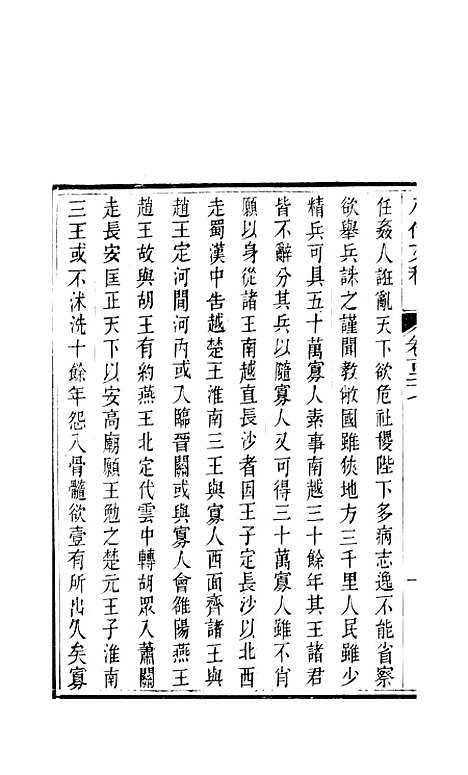 任姦人誑亂天下欲危社稷陛下多病志逸不能省察
欲舉兵誅之謹聞教敝國雖狹地方三千里人民雖少
精兵可具五十萬寡人素事南越三十餘年其王諸君
皆不辭分其兵以隨寡人又可得三十萬寡人雖不肖
願以身從諸王南越直長沙者因王子定長沙以北西
走蜀漢中告越楚王淮南三王與寡人西面齊諸王與
趙王定河間河內或入臨晉關或與寡人會雒陽燕王
趙王故與胡王有約燕王北定代雲中轉胡眾入蕭關
走長安匡正天下以安高廟願王勉之楚元王子淮南
三王或不沐洗十餘年怨入骨髓欲壹有所出久矣寡